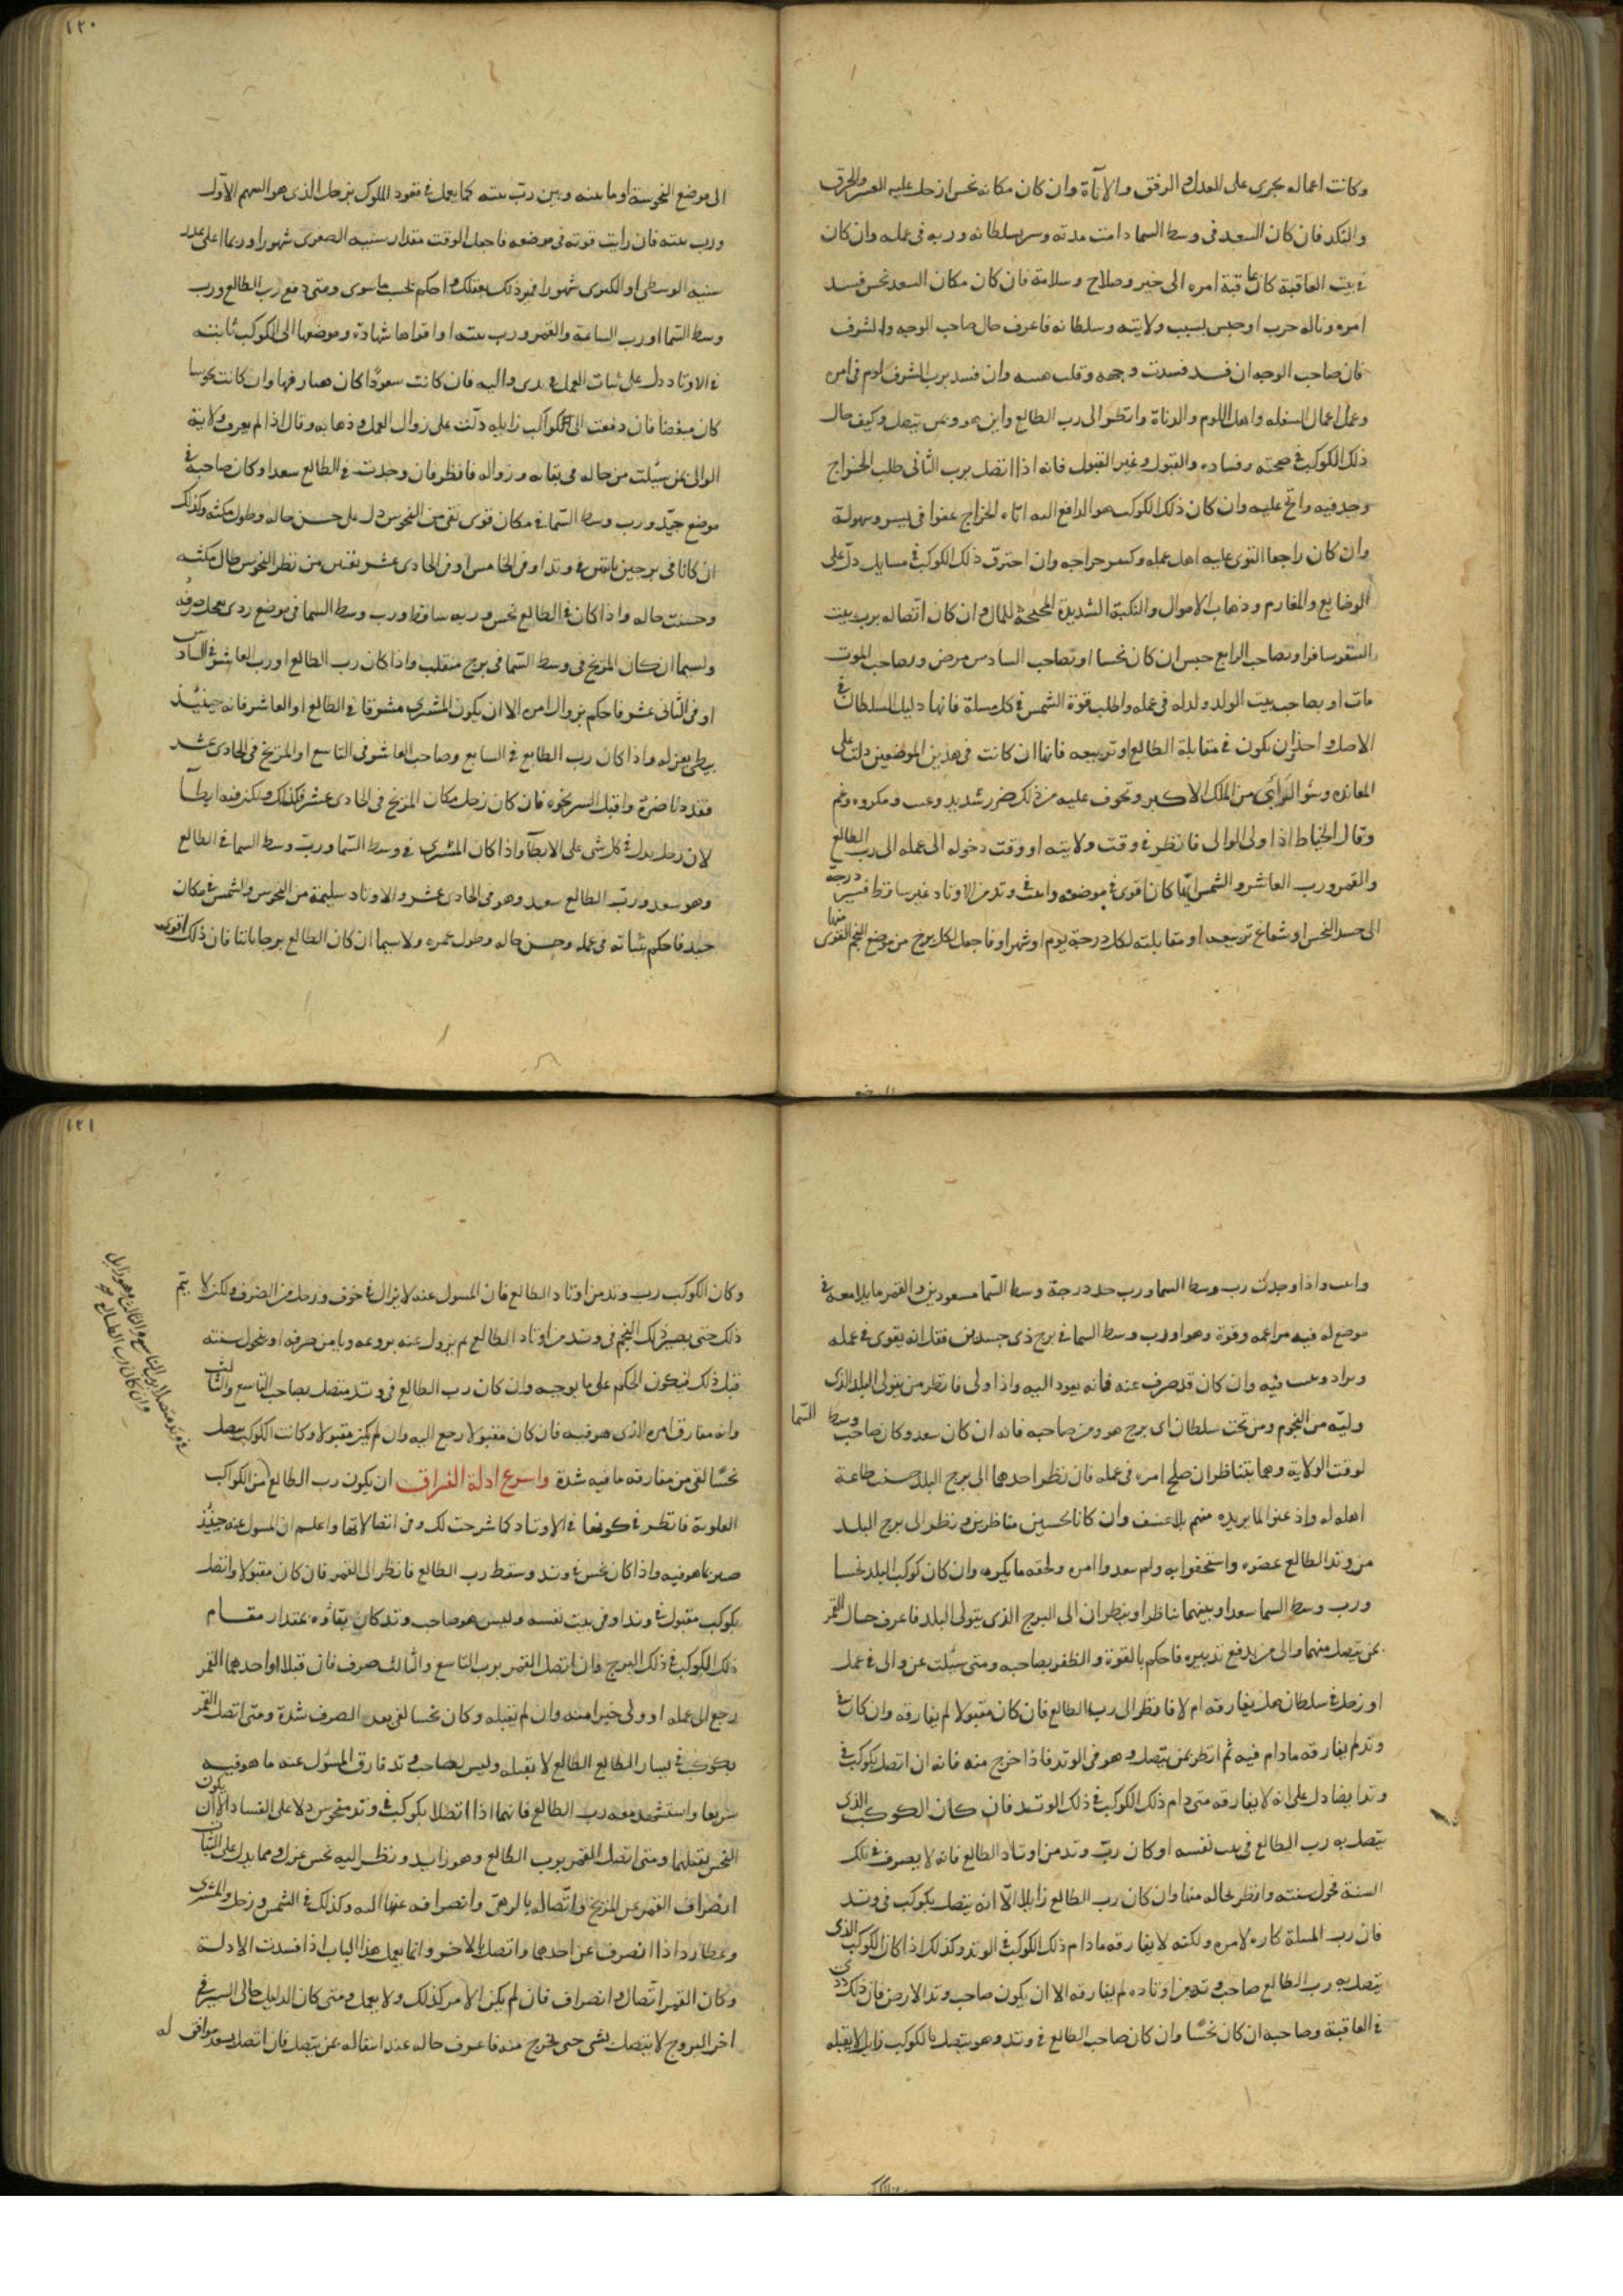 ١٢٠
وكانت اعماله يجرى على العدل والرفق والاناة وان كان مكانه نحس او زحل عليه العسر والخرق
والنكد فان كان السعد فى وسط السما دامت مدته وسر بسلطانه ورب فى عمله وان كان
فى بيت العاقبة كان عاقبة امره الى خير وصلاح وسلامة فان كان مكان السعد نحس فسد
امره وناله حرب او حبس بسبب ولايته وسلطانه فاعرف حال صاحب الوجه والشرف
فان صاحب الوجه ان فسد فسدت وجهه وقلب وان فسد برب الشرف لوم فى امره
وعمل اعمال السفله واهل اللوم والدناة وانظر الى رب الطالع واين هو وبمن يتصل وكيف حال
ذلك الكوكب فى صحته وفساده والقبول وغير القبول فانه اذا اتصل برب الثانى طلب الخراج
وجد فيه والح عليه وان كان ذلك الكوكب هو الدافع اليه اتاه الخراج عفوا فى يسر وسهولة
وان كان راجعا التوى عليه اهل عمله وكسر خراجه وان احترق ذلك الكوكب فى مسايل دل على
الوضايع والمغارم وذهاب الاموال والنكبة الشديدة المجحفة للمال وان كان اتصاله برب بيت
السفر سافر او بصاحب الرابع حبس ان كان نحسا او بصاحب السادس مرض وبصاحب الموت
مات او بصاحب بيت الولد ولد له فى عمله واطلب قوة الشمس فى كل مسلة فانها دليل السلطان فى
الاصل واحذر ان يكون فى مقابلة الطالع او تربيعه فانها ان كانت فى هذين الموضعين دلت على
المعانده وسؤ الراى من الملك الاكبر وتخوف عليه من ذلك ضرر شديد ومكروه وغم
وقال الخياط اذا ولى الوالى فانظر فى وقت ولايته او وقت دخوله الى عمله الى رب الطالع
والقمر ورب العاشر والشمس ايها كان اقوى فى موضعه وانه فى وتد من الاوتاد غير ساقط فسير درجة
الى جسد النحس او شعاع تربيعه او مقابلته لكل درجة يوم او شهرا فاجعل لكل برج من موضع النجم القوى منها
الى موضع النحوسة او ما بينه وبين رب بيته كما يعمل فى قعود الملوك بزحل الذى هو السهم الاول
ورب بيته فان رايت قوته فى موضعه فاجعل الوقت مقدار سنيه الصغرى شهورا وربما على قدر
سنيه الوسطى او الكبرى شهورا فميز ذلك بعقلك واحكم بحسب ما سوى ومتى دفع رب الطالع ورب
وسط السما او رب الساعة والقمر ورب بيته او اقواها شهادة وموضعها الى الكوكب ثابته
فى الاوتاد دل على ثبات العمل فى يدى واليه فان كانت سعودا كان مصارفها وان كانت نحوسا
كان مبغضا فان دفعت الى الكواكب زايله دلت على زوال العمل وذهابه وقال اذا لم يعرف ولاية
الوالى عن سيلت من حاله فى بقائه وزواله فانظر فان وجدت فى الطالع سعدا وكان صاحبه فى
موضع جيد ورب وسط السما فى مكان قوى نقى من النحوس دل على حسن حاله وطول مكثه وكذلك
ان كانا فى برجين ثابتين فى وتد او فى الخامس او فى الحادى عشر نقيين من نظر النحوس طال مكثه
وحسنت حاله واذا كان فى الطالع نحس وربه ساقط ورب وسط السما فى موضع ردى عجل صرفه
ولسيما ان كان المريخ فى وسط السما فى برج منقلب واذا كان رب الطالع او رب العاشر فى السادس
او فى الثانى عشر فاحكم بزوال امره الا ان يكون المشترى مشرقا فى الطالع او العاشر فانه حينيذ
يبطى بعزله واذا كان رب الطالع فى السابع وصاحب العاشر فى التاسع او المريخ فى الحادى عشر
فقد دنا ضرة واقبل الشر نحوه فان كان زحل مكان المريخ فى الحادى عشر فكذلك ولكن فيه ابطآ
لان زحل يدل فى كل شى على الابطآ واذا كان المشترى فى وسط السما ورب وسط السما فى الطالع
وهو سعد ورب الطالع سعد وهو فى الحادى عشر والاوتاد سليمة من النحوس والشمس فى مكان
جيد فاحكم بثباته فى عمله وحسن حاله وطول عمره ولا سيما ان كان الطالع برجا ثابتا فان ذلك اقوى
١٢١
واثبت واذا وجدت رب وسط السما ورب حد درجة وسط السما مسعودين والقمر مايلا معه فى
موضع له فيه مزاعمه وقوة وهو او رب وسط السما فى برج ذى جسدين فقل انه يقوى فى عمله
ويزاد ويثبت فيه وان كان قد صرف عنه فانه يعود اليه واذا ولى فانظر من يتولى البلد الذى
وليه من النجوم ومن تحت سلطان اى برج هو ومن صاحبه فانه ان كان سعد وكان صاحب وسط السما
لوقت الولاية وهما يتناظران صلح امره فى عمله فان نظر احدهما الى برج البلد حسنت طاعة
اهله له واذعنوا لما يريده منهم بلا عسف وان كانا نحسين متناظرين ونظر الى برج البلد
من وتد الطالع عصوه واستخفوا به ولم سعدوا امره ولحقه ما يكره وان كان كوكب البلد نحسا
ورب وسط السما سعدا وبينهما تناظر او ينظران الى البرج الذى يتولى البلد فاعرف حال القمر
عن يتصل منهما والى من يدفع تدبيره فاحكم بالقوة والظفر بصاحبه ومتى سئلت عن والى فى عمل
او رجل فى سلطان هل يفارقه ام لا فانظر الى رب الطالع فان كان مقبولا لم يفارقه وان كان فى
وتد لم يفارقه ما دام فيه ثم انظر بمن يتصل وهو فى الوتد فاذا خرج منه فانه ان اتصل بكوكب فى
وتد ايضا دل على انه لا يفارقه متى دام ذلك الكوكب فى ذلك الوتد فان كان الكوكب الذى
يتصل به رب الطالع فى بيت نفسه او كان رب وتد من اوتاد الطالع فانه لا يصرف فى تلك
السنة فحول سنته وانظر لحاله منها وان كان رب الطالع زايلا الا انه يتصل بكوكب فى وتد
فان رب المسلة كاره لامره ولكنه لا يفارقه ما دام ذلك الكوكب فى الوتد وكذلك اذا كان الكوكب الذى
يتصل به رب الطالع صاحب وتد من اوتاده لم يفارقه الا ان يكون صاحب وتد الارض فان ذلك ردى
فى العاقبة وصاحبه ان كان نحسا وان كان صاحب الطالع فى وتد وهو يتصل بالكوكب زايل لا يقبله
وكان الكوكب رب وتد من اوتاد الطالع فان المسول عنه لا يزال فى خوف ووجل من الصرف ولكن لا يتم
ذلك حتى يصير ذلك النجم فى وتد من اوتاد الطالع ثم يزول عنه بروعه ويامن صرفه او تحول سنته
قبل ذلك فيكون الحكم على ما يوجبه وان كان رب الطالع فى وتد متصل بصاحب التاسع والثالث
وانه مفارق امره الذى هو فيه فان كان مقبولا رجع اليه وان لم يكن مقبولا وكانت الكوكب يتصل
نحسا لقى من مفارقه ما فيه شدة واسرع ادلة الفراق ان يكون رب الطالع من الكواكب
العلوية فانظر فى كونها فى الاوتاد كما شرحت لك وفى اتصالاتها واعلم ان المسول عنه حينئذ
صبر بما هو فيه واذا كان نحس فى وتد وسقط رب الطالع فانظر الى القمر فان كان مقبولا واتصل
بكوكب مقبول فى وتد او فى بيت نفسه وليس هو صاحب وتد كان بقاؤه بمقدار مقام
ذلك الكوكب فى ذلك البرج وان اتصل القمر برب التاسع والثالث صرف فان قبلا او احدهما القمر
رجع الى عمله او ولى خيرا منه وان لم يقبله وكان نحسا لقى بعد الصرف شدة ومتى اتصل القمر
بكوكب فى يسار الطالع الطالع لا يقبله وليس بصاحب وتد فارق المسؤل عنه ما هو فيه
سريعا واستشهد معه رب الطالع فانهما اذا اتصلا بكوكب فى وتد منحوس دلا على الفساد الا ان يكون
النحس يقبلهما ومتى اتصل القمر برب الطالع وهو زايد ونظر اليه نحس عزل ومما يدل على الثبات
انصراف القمر عن المريخ واتصاله بالزهرة وانصرافه عنها اليه وكذلك فى الشمس وزحل والمشترى
وعطارد اذا انصرف عن احدهما واتصل بالاخر وانما يعمل هذا الباب اذا فسدت الادلة
وكان القمر اتصال وانصراف فان لم يكن الامر كذلك ولا يعمل ومتى كان الدليل خالى السير فى
اخر البروج لا يتصل بشى حتى يخرج منه فاعرف حاله عند انتقاله بمن يتصل فان اتصل بسعد موافق له
وان كان رب الطالع
فى وتد متصلا برب التاسع والثالث وهو زايل